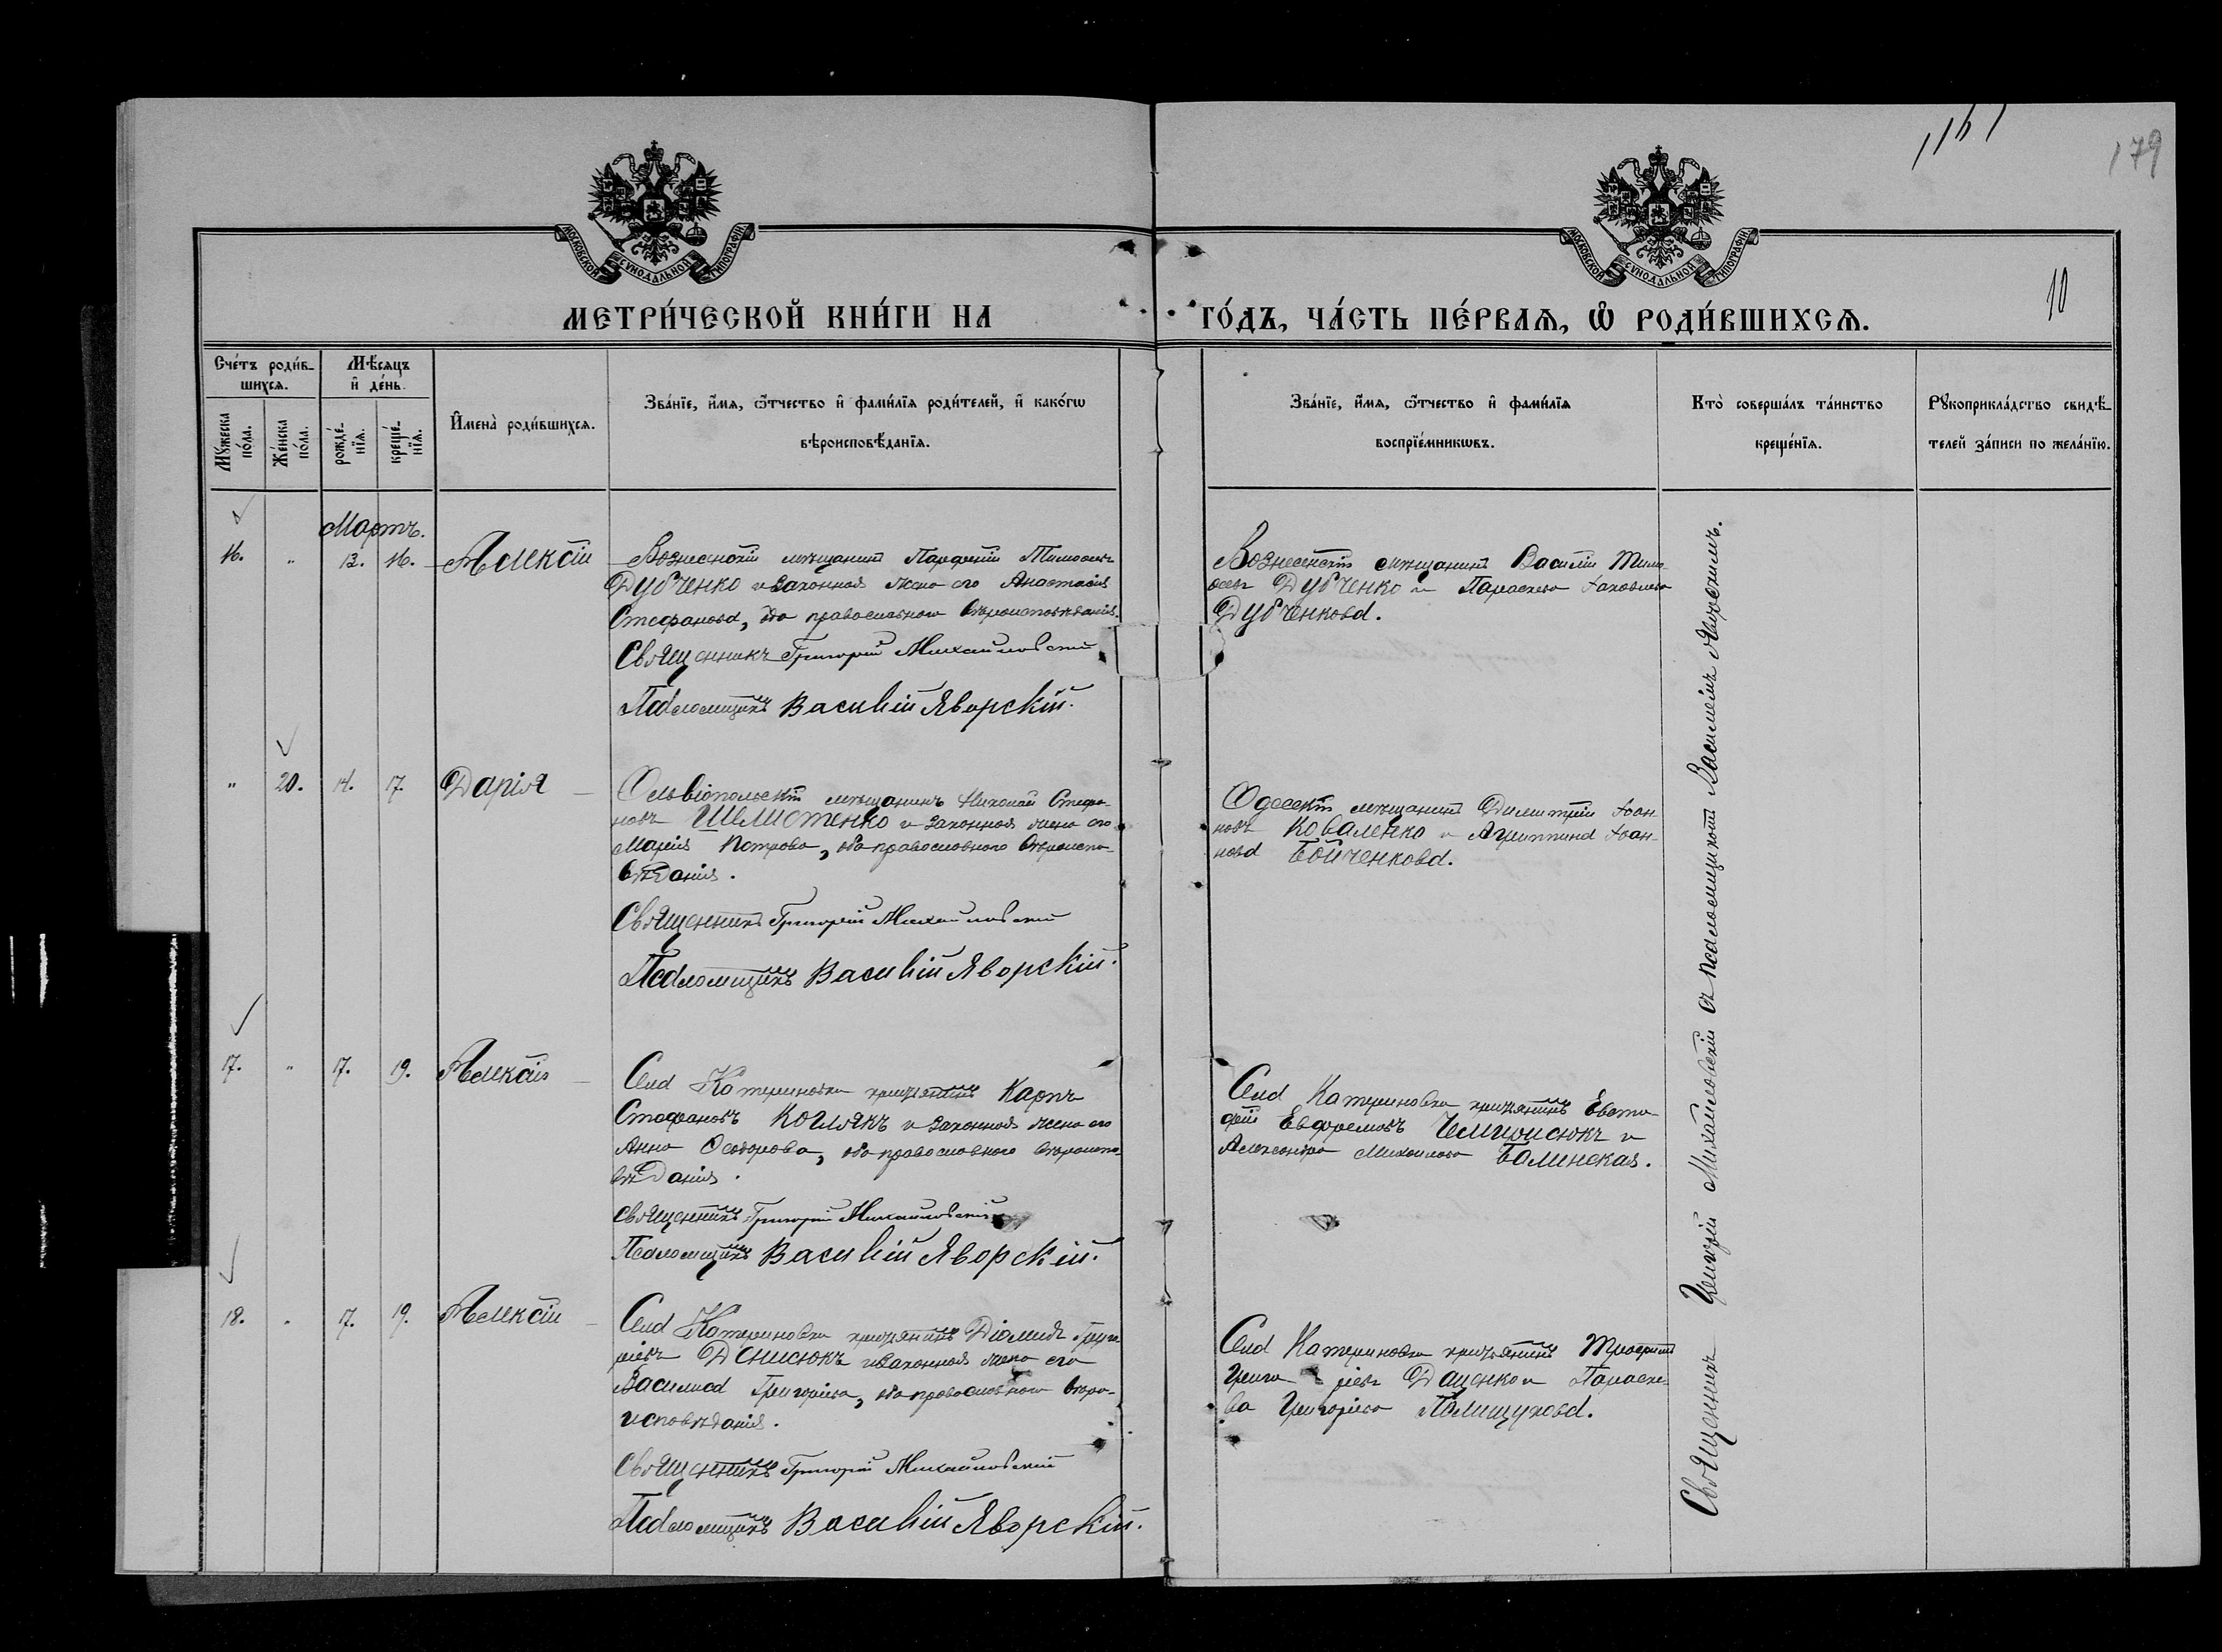 1161
179
10
МОСКОВСКОЙ СѴНОДАЛЬНОЙ ТИПОГРАФІИ
МОСКОВСКОЙ СѴНОДАЛЬНОЙ ТИПОГРАФІИ
МЕТРИ́ЧЕСКОЙ КНИ́ГИ НА
ГО́ДЪ, ЧА́СТЬ ПЕ́РВАѦ, Ѽ РОДИ́ВШИХСѦ.
Сче́тъ роди́в-
шихсѧ.
Мꙋ́жеска по́ла.
Же́нска по́ла.
Мѣ́сѧцъ
и҆ де́нь.
рожде́-нїѧ.
креще́-нїѧ.
И҆мена̀ роди́вшихсѧ.
Зва́нїе, и҆́мѧ, ѻ҆́тчество и҆ фами́лїѧ роди́телей, и҆ како́гѡ
вѣроисповѣ́данїѧ.
Зва́нїе, и҆́мѧ, ѻ҆́тчество и҆ фами́лїѧ
воспрїе́мникѡвъ.
Кто̀ соверша́лъ та́инство
креще́нїѧ.
Рꙋкоприкла́дство свидѣ́-
телей за́писи по жела́нїю.
Мартъ.
16. " 13. 16. Алексій
Вознесенскій мѣщанинъ Парфеній Тимофеевъ
Дубченко и законная жена его Анастасія
Стефанова, оба православнаго вѣроисповѣданія.
Священникъ Григорій Михайловскій
Псаломщикъ Василій Яворскій.
Вознесенскій мѣщанинъ Василій Тимо-
феевъ Дубченко и Параскева Іаковлева
Дубченкова.
" 20. 14. 17. Дарія
Ольвіопольскій мѣщанинъ Николай Стефа-
новъ Шелистенко и законная жена его
Марія Петрова, оба православнаго вѣроиспо-
вѣданія.
Священникъ Григорій Михайловскій
Псаломщикъ Василій Яворскій.
Одесскій мѣщанинъ Димитрій Іоан-
новъ Коваленко и Агриппина Іоан-
нова Бойченкова.
17. " 17. 19. Алексій
Села Катериновки крестьянинъ Карпъ
Стефановъ Коглякъ и законная жена его
Анна Ѳеодорова, оба православнаго вѣроиспо-
вѣданія.
Священникъ Григорій Михайловскій
Псаломщикъ Василій Яворскій.
Села Катериновки крестьянинъ Евста-
фій Евфремовъ и
Александра Михайлова Балинская.
18. " 17. 19. Алексій
Села Катериновки крестьянинъ Діомидъ Григо-
ріевъ Денисюкъ и законная жена его
Василиса Григоріева, оба православнаго вѣро-
исповѣданія.
Священникъ Григорій Михайловскій
Псаломщикъ Василій Яворскій.
Села Катериновки крестьянинъ Трофимъ
Григоріевъ Даценко и Параске-
ва Григоріева Полищукова.
Священникъ Григорій Михайловскій съ псаломщикомъ Василіемъ Яворскимъ.